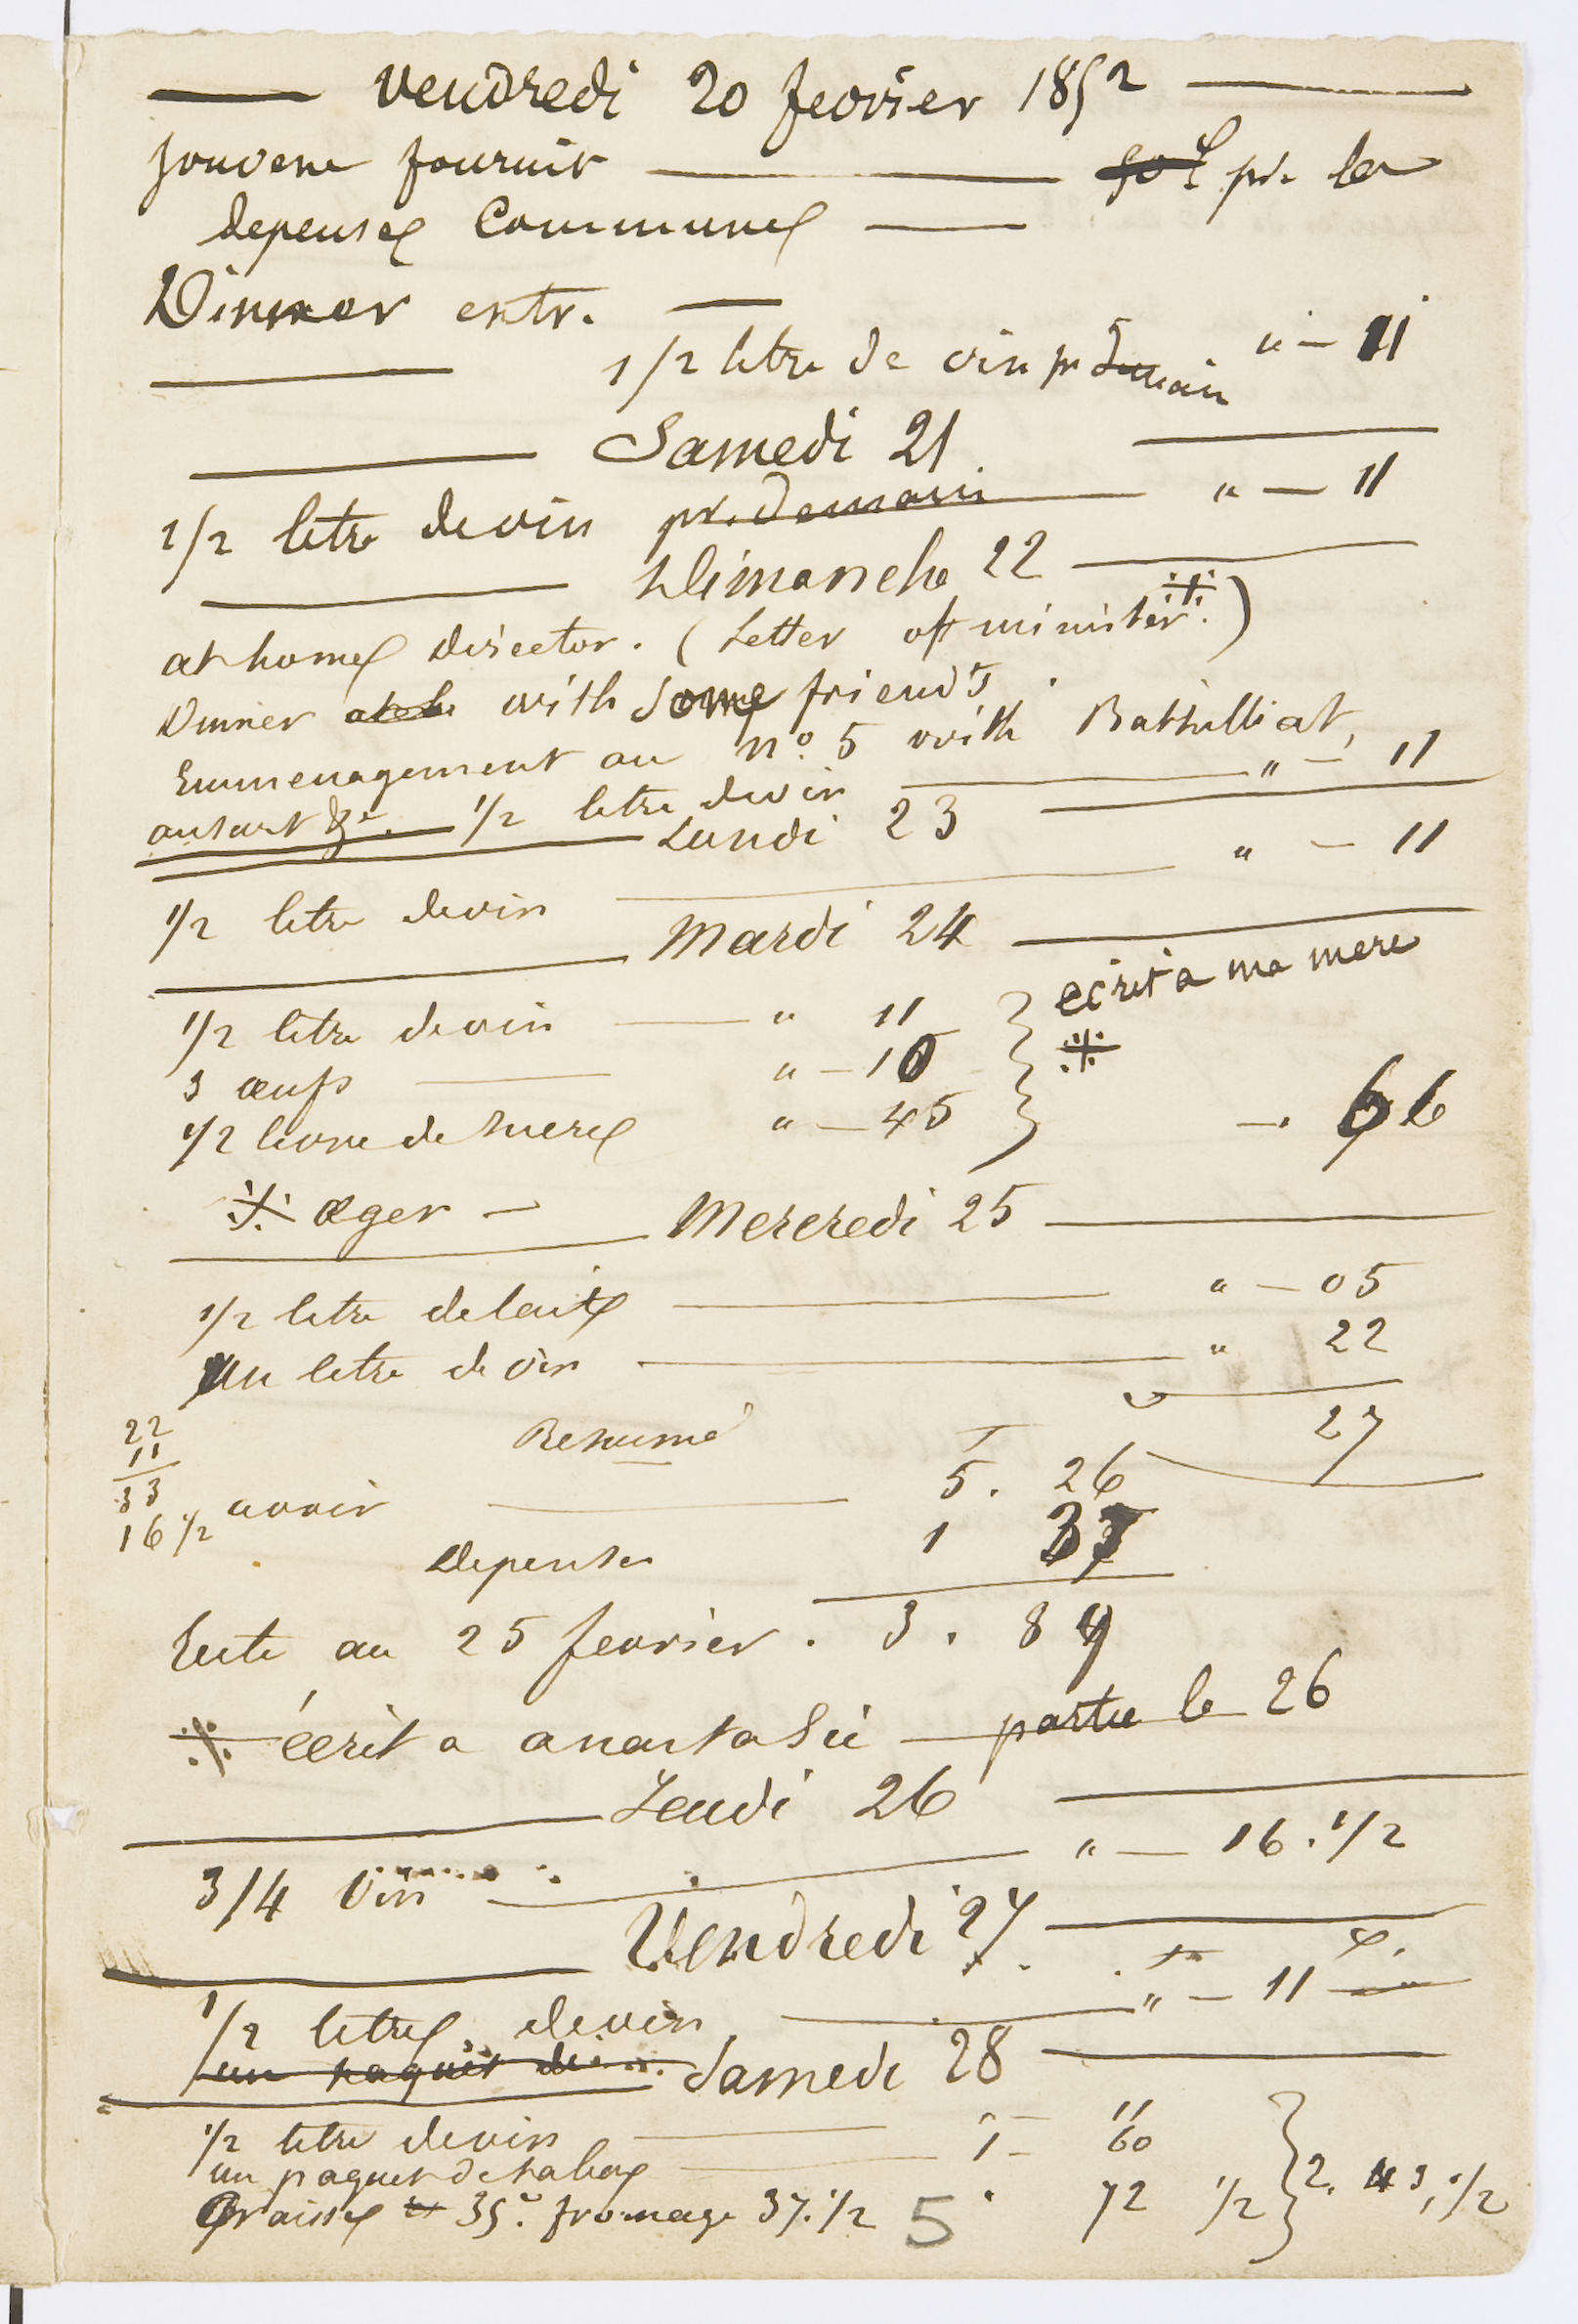 vendredi 20 fevrier 1852
fournir pr. les
depenses Communes
Dinner extr.
1/2 litre de vin pr demain " — 11
Samedi 21
1/2 litre de vin pr. demain " — 11
Dimanche 22
at home director. (Letter of minister.)
Dinner with some friends
Emmenagement au n° 5 with Batthilliat,
1/2 litre de vin " — 11
Lundi 23
1/2 litre de vin " — 11
Mardi 24
1/2 litre de vin " 11 ecrit a ma mere
3 œufs " — 10
1/2 livre de sucre " — 45 — 66
æger — Mercredi 25
1/2 litre de lait " — 05
un litre de vin " 22
27
22
11
33
16 1/2
Resumé
avoir 5. 26
Depenses 1 37
Reste au 25 fevrier. 3. 89
écrit a anastasie — partie le 26
Jeudi 26
3/4 vin " — 16. 1/2
Vendredi 27
1/2 litre de vin " — 11
un paquet de
Samedi 28
1/2 litre de vin 11
un paquet de tabac 1 — 60
Graisse 35 c fromage 37. 1/2 72 1/2 } 2. 43, 1/2
5